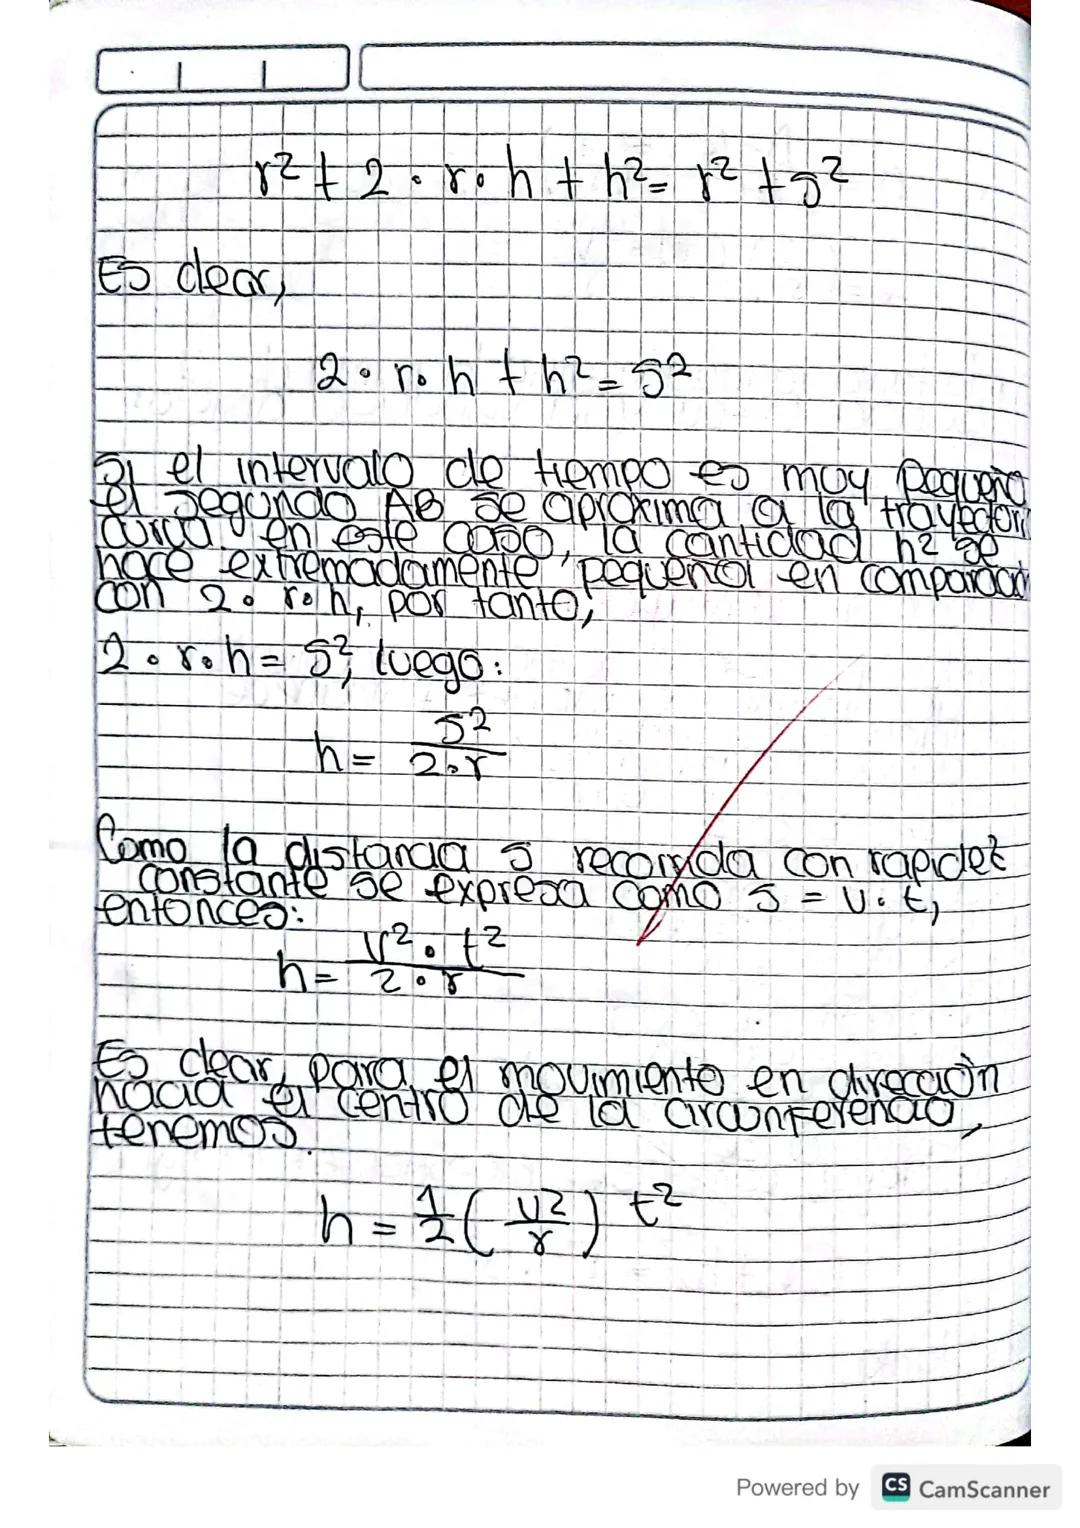 r² + 2 · r · h + h² = r² + s²
Es decir,
2 · r · h + h² = s²
Si el intervalo de tiempo es muy pequeño
el segundo AB se aproxima a la trayectori
curva. en este caso, la cantidad h² se
hace extremadamente pequeña en comparacion
con 2 · r · h, por tanto,
2 · r · h = s², luego:
h = s² / 2 · r
Como la distancia s recorrida con rapidez
constante se expresa como s = v · t,
entonces:
h = v² · t² / 2 · r
Es decir, para el movimiento en dirección
hacia el centro de la circunferencia,
tenemos.
h = 1/2 ( v² / r ) t²
Powered by CS CamScanner